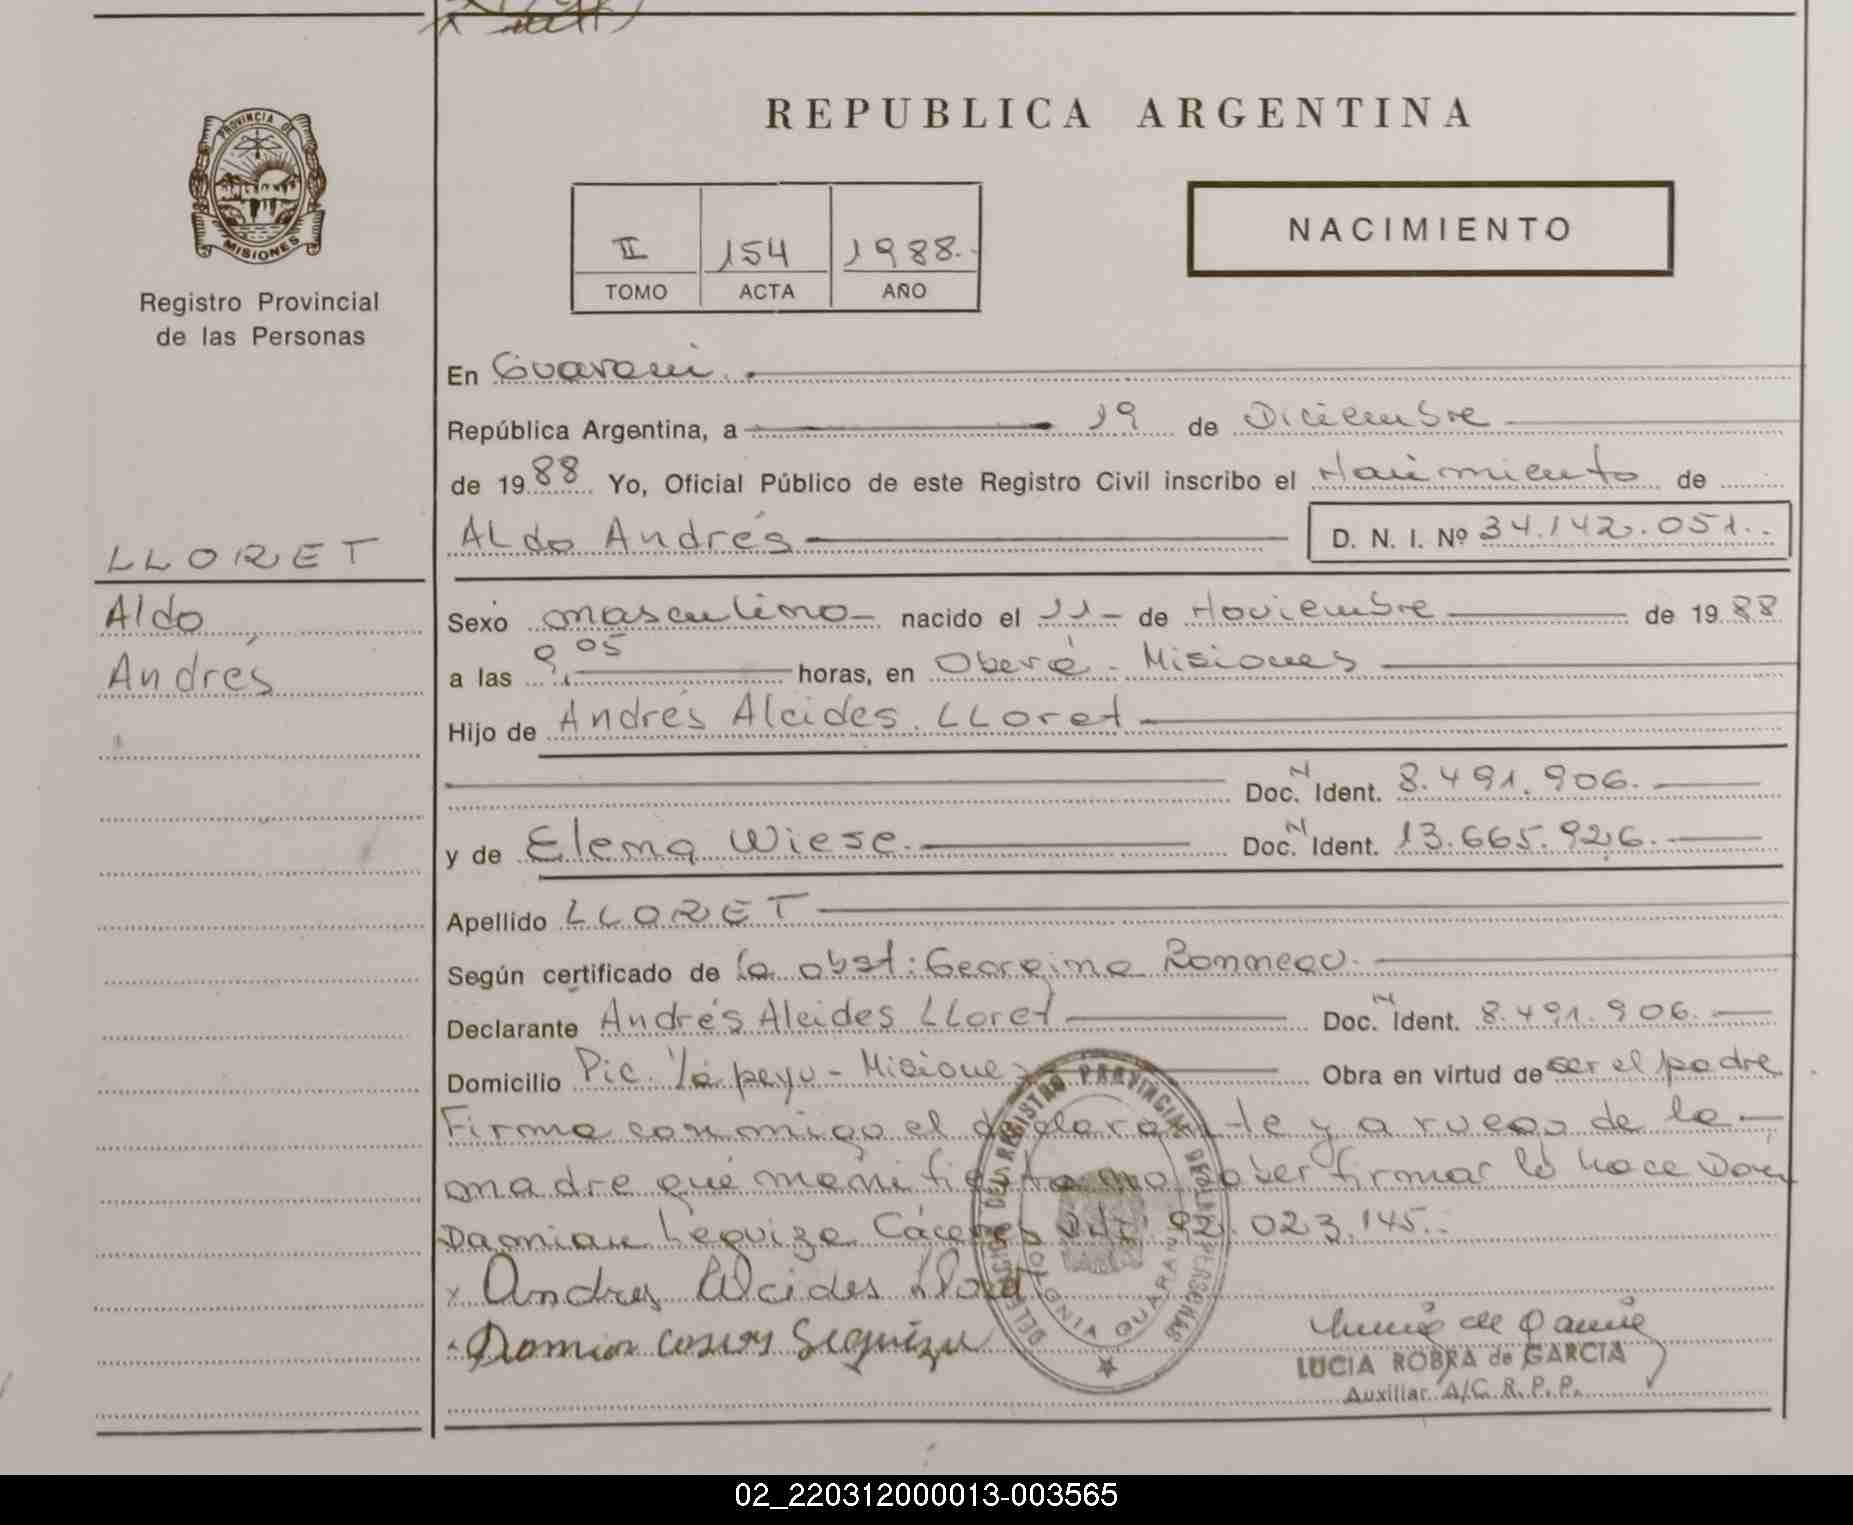 PROVINCIA DE
MISIONES
Registro Provincial
de las Personas
LLORET
Aldo
Andrés
REPUBLICA ARGENTINA
II 154 1988.-
TOMO ACTA AÑO
NACIMIENTO
En Guarani.
República Argentina, a 19 de Diciembre
de 1988 Yo, Oficial Público de este Registro Civil inscribo el Nacimiento de
ALdo Andrés D. N. I. Nº 34.142.051.
Sexo masculino nacido el 11- de Noviembre de 1988
a las 9,05 horas, en Oberá - Misiones
Hijo de Andrés Alcides LLoret
Doc. N Ident. 8.491.906.
y de Elema Wiese. Doc. N Ident. 13.665.926.
Apellido LLORET
Según certificado de la obst: Georgina Rommeou.
Declarante Andrés Alcides LLoret Doc. N Ident. 8.491.906.
Domicilio Pic. Yapeyu - Misiones Obra en virtud de ser el padre
Firma conmigo el declarante y a ruego de la
madre que manifiesta no saber firmar lo hace Don
Damian Leguiza Cáceres 92.023.145.
x Andres Alcides Lloret
LUCIA ROBRA de GARCIA
Auxiliar A/C. R. P. P.
REGISTRO PROVINCIAL DE LAS PERSONAS
COLONIA GUARANI
02_220312000013-003565